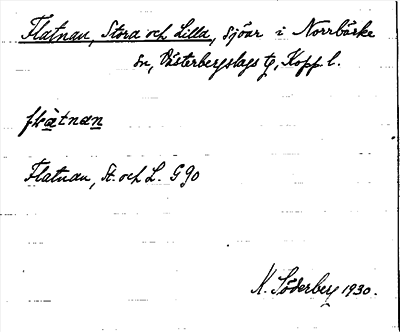 Flatnan, Stora och Lilla, sjöar i Norrbärke
sn, Västerbergslags tg, Kopp. l.
flàtnan
Flatnan, St. och L. G 90
N. Söderberg 1930.